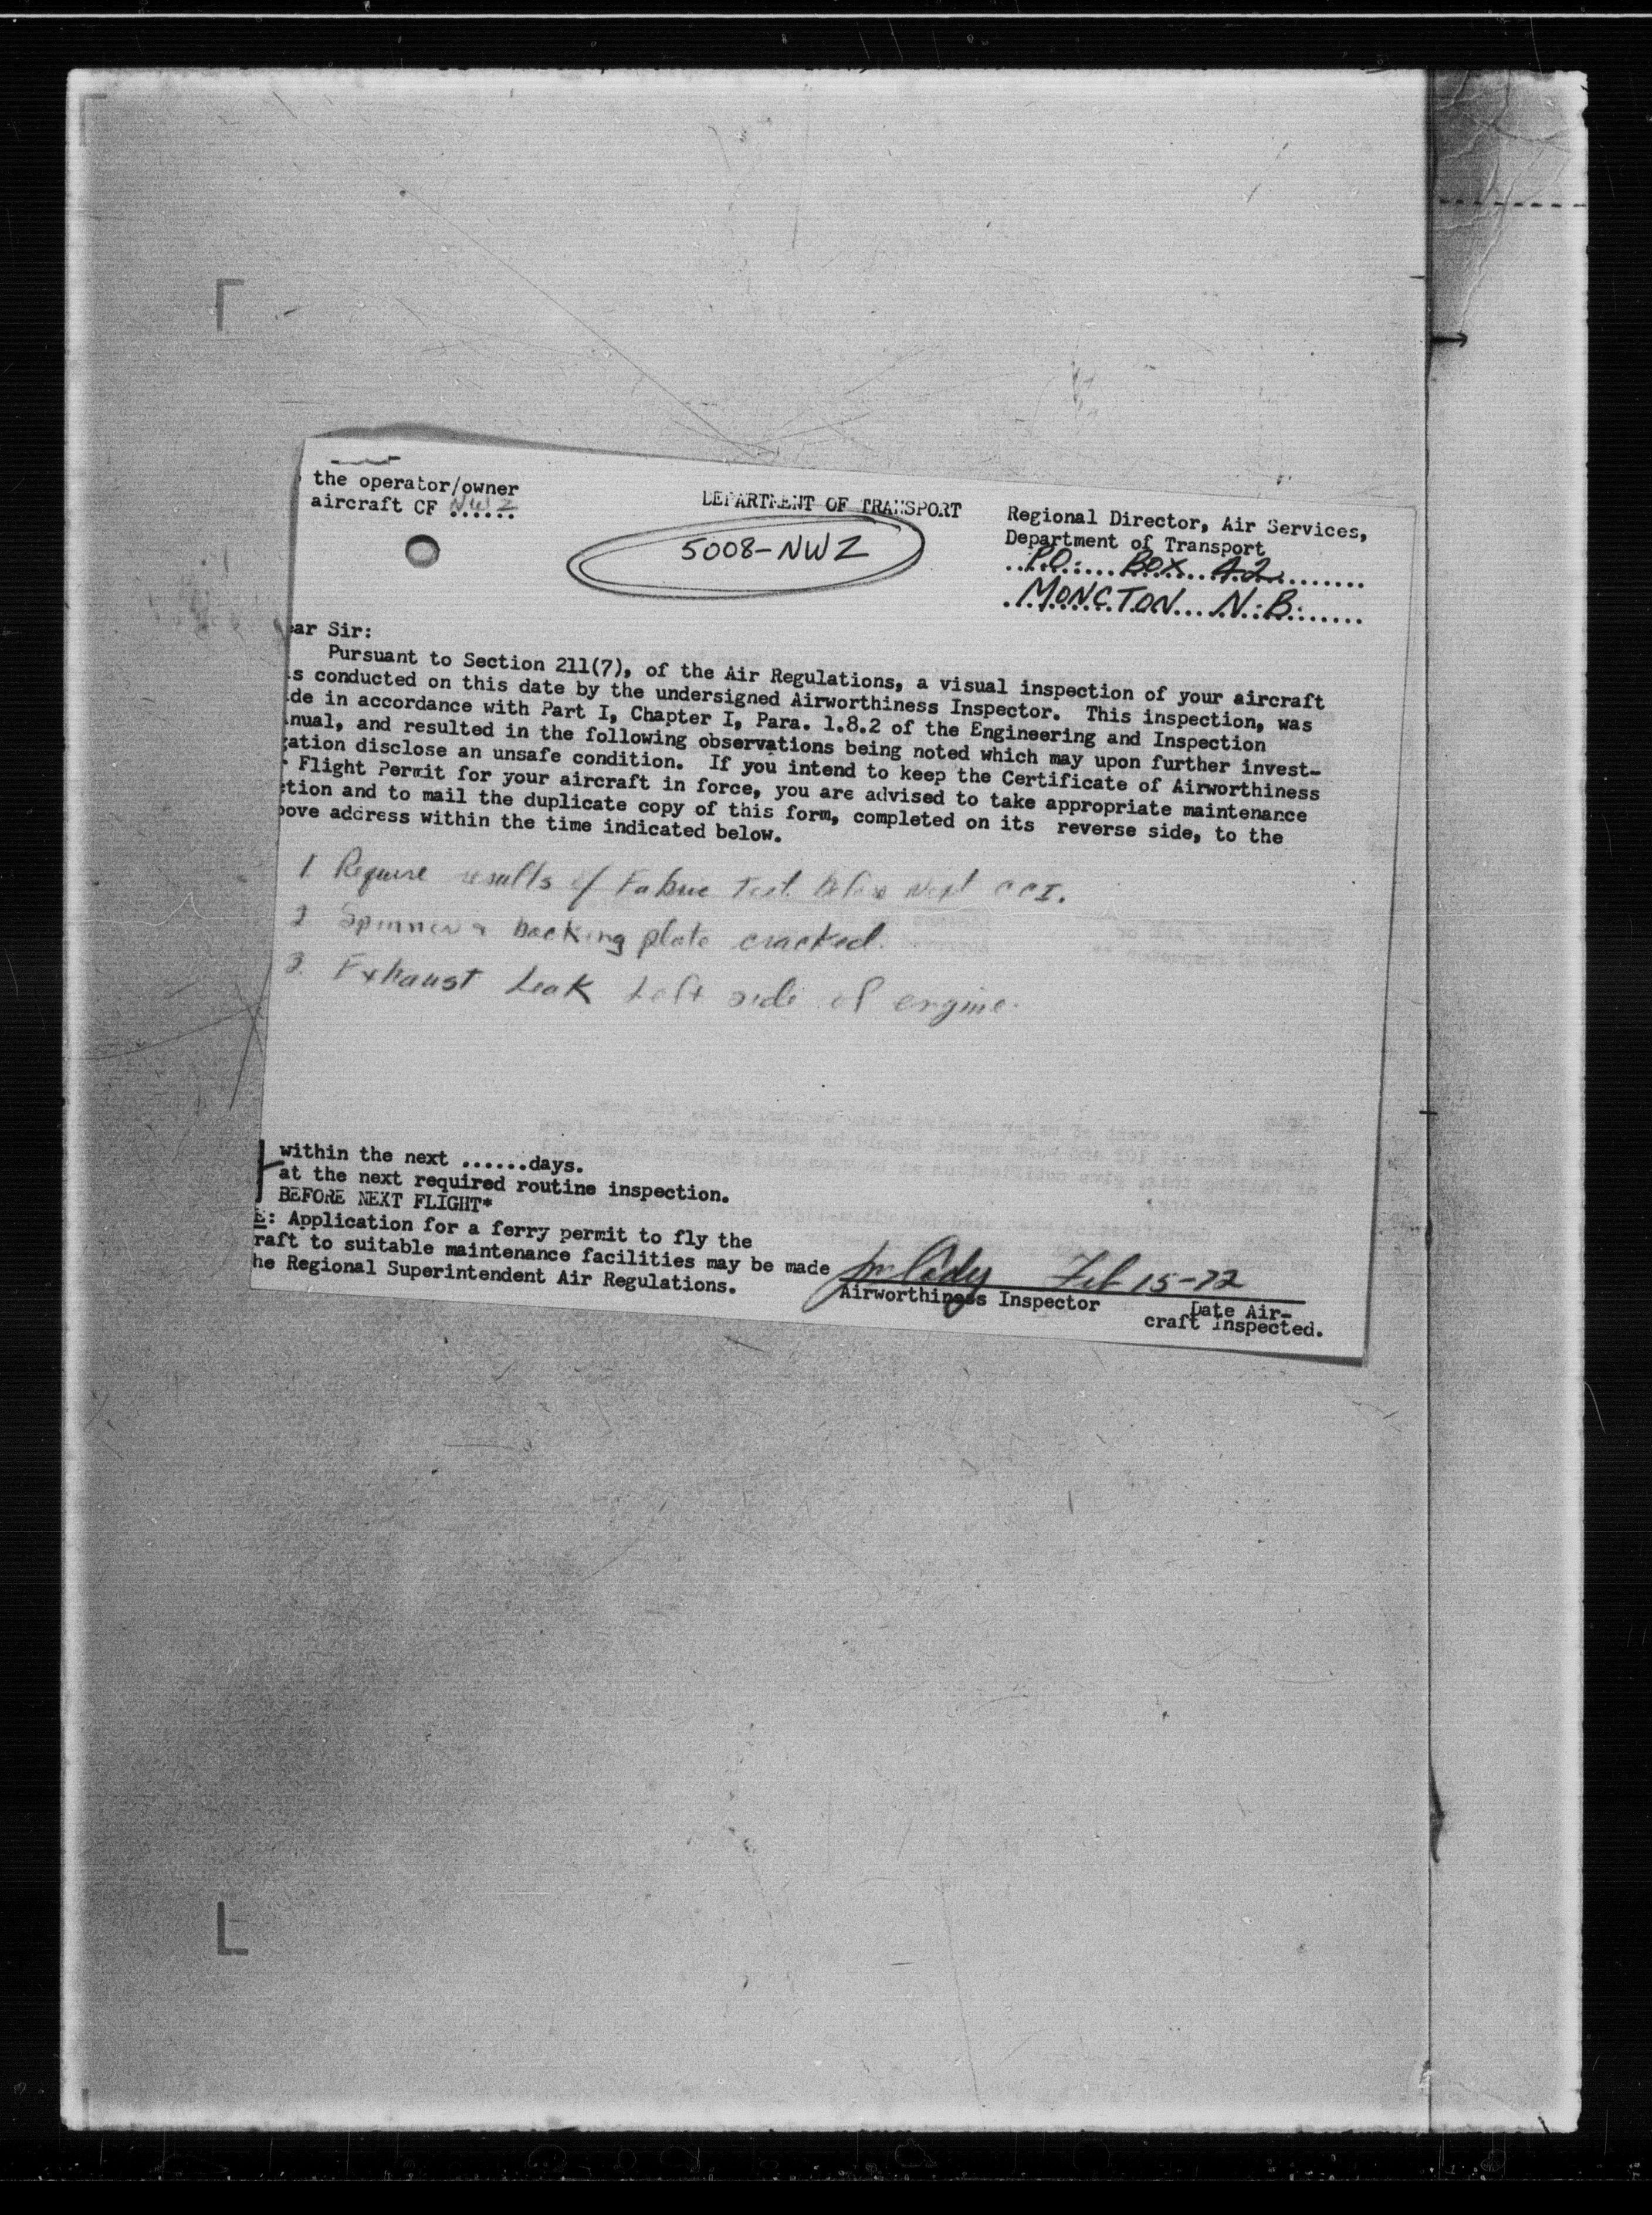 the operator/owner
aircraft CF NWZ
DEPARTMENT OF TRANSPORT
5008-NWZ
Regional Director, Air Services,
Department of Transport
P.O. BOX 42
MONCTON N.B.
ear Sir:
Pursuant to Section 211(7), of the Air Regulations, a visual inspection of your aircraft
s conducted on this date by the undersigned Airworthiness Inspector. This inspection, was
de in accordance with Part I, Chapter I, Para. 1.8.2 of the Engineering and Inspection
nual, and resulted in the following observations being noted which may upon further invest-
gation disclose an unsafe condition. If you intend to keep the Certificate of Airworthiness
Flight Permit for your aircraft in force, you are advised to take appropriate maintenance
ction and to mail the duplicate copy of this form, completed on its reverse side, to the
bove address within the time indicated below.
1 Require results of Fabric Test Before Next CCI.
2 Spinner & backing plate cracked.
3. Exhaust Leak Left side of engine.
within the next ......days.
at the next required routine inspection.
BEFORE NEXT FLIGHT*
E: Application for a ferry permit to fly the
raft to suitable maintenance facilities may be made
he Regional Superintendent Air Regulations.
Feb 15-72
Airworthiness Inspector
Date Air-
craft Inspected.